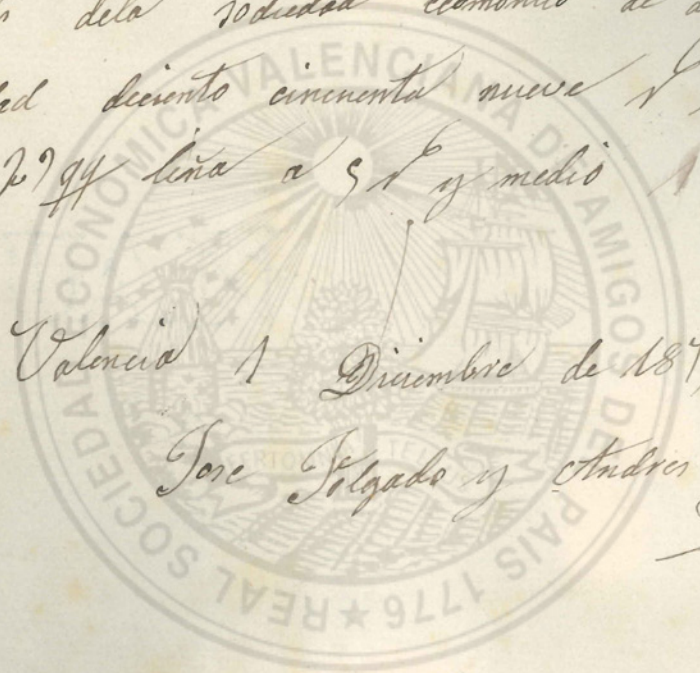 dela sodiedad economico de
deciento cincuenta nueve
liña a 5 r y medio
Valencia 1 Diciembre de 187
Jose Folgado y Andres
REAL SOCIEDAD ECONOMICA VALENCIANA DE AMIGOS DEL PAIS 1776